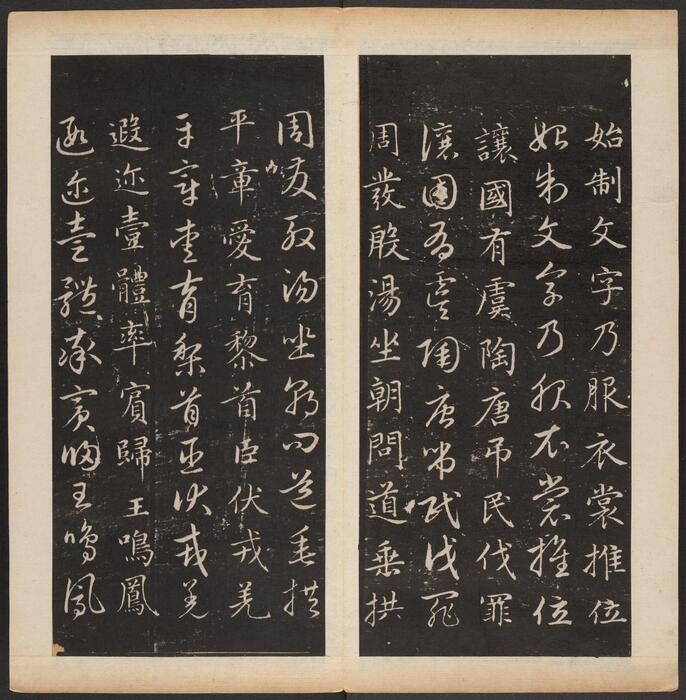 始制文字乃服衣裳推位
始制文字乃服衣裳推位
讓國有虞陶唐吊民伐罪
讓國有虞陶唐吊民伐罪
周發殷湯坐朝問道垂拱
周發殷湯坐朝問道垂拱
平章愛育黎首臣伏戎羌
平章愛育黎首臣伏戎羌
遐迩壹體率賓歸王鳴鳳
遐迩壹體率賓歸王鳴鳳